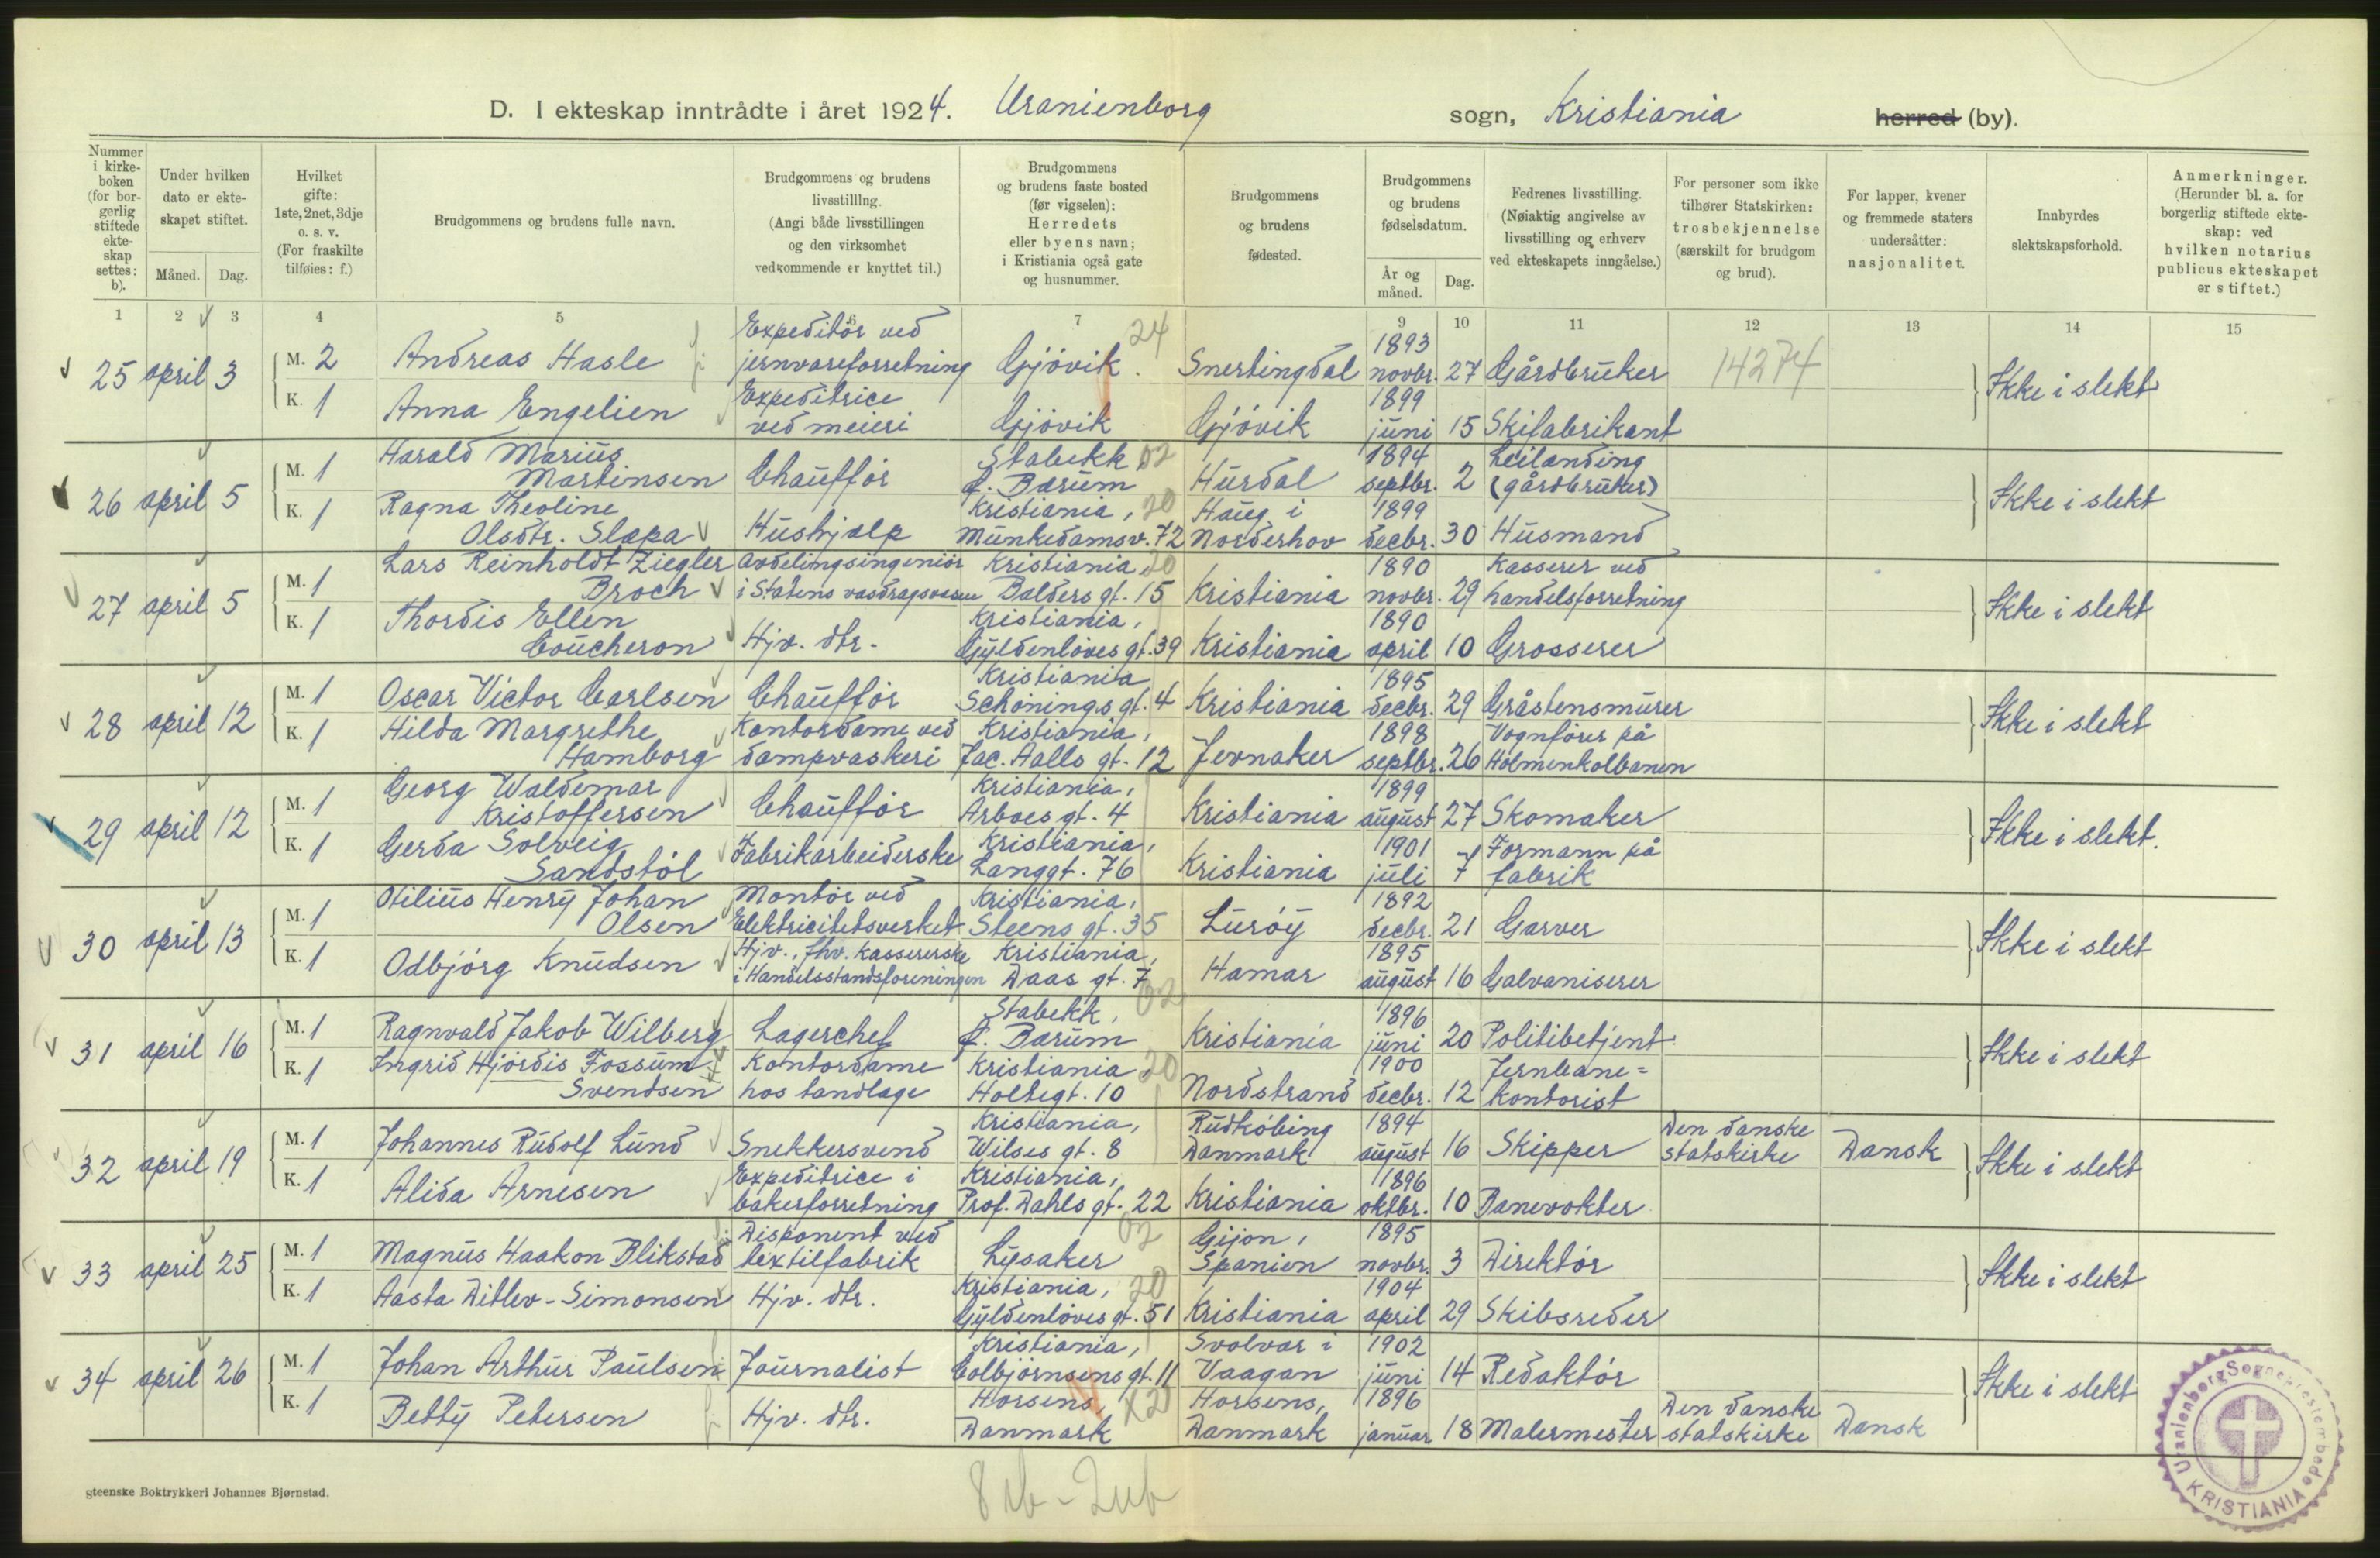 D. I ekteskap inntrådte i året 1924. Uranienborg sogn, Kristiania herred (by).
Nummer i kirkeboken (for borgerlig stiftede ekteskap settes: b).
Under hvilken dato er ekteskapet stiftet.
Måned. Dag.
Hvilket gifte: 1ste, 2net, 3dje o. s. v. (For fraskilte tilføies: f.)
Brudgommens og brudens fulle navn.
Brudgommens og brudens livsstilllng. (Angi både livsstillingen og den virksomhet vedkommende er knyttet til.)
Brudgommens og brudens faste bosted (før vigselen): Herredets eller byens navn; i Kristiania også gate og husnummer.
Brudgommens og brudens fødested.
Brudgommens og brudens fødselsdatum.
År og måned. Dag.
Fedrenes livsstilling. (Nøiaktig angivelse av livsstilling og erhverv ved ekteskapets inngåelse.)
For personer som ikke tilhører Statskirken: trosbekjennelse (særskilt for brudgom og brud).
For lapper, kvener og fremmede staters undersåtter: nasjonalitet.
Innbyrdes slektskapsforhold.
Anmerkninger. (Herunder bl. a. for borgerlig stiftede ekteskap: ved hvilken notarius publicus ekteskapet er stiftet.)
1 2 3 4 5 6 7 9 10 11 12 13 14 15
25 april 3 M. 2 Andreas Hasle Expeditør ved jernvareforretning Gjövik. 24 Snertingdal 1893 novbr. 27 Gårdbruker 14274 Ikke i slekt
K. 1 Anna Engelien Expeditrice ved meieri Gjövik Gjövik 1899 juni 15 Skifabrikant
26 april 5 M. 1 Harald Marius Martinsen Chauffør Stabekk 02 p. Bærum Hurdal 1894 septbr. 2 Leilending (gårdbruker) Ikke i slekt
K. 1 Ragna Theoline Olsdtr. Slæpa Hushjælp Kristiania, 20 Munkedamsv. 72 Haug i Norderhov 1899 decbr. 30 Husmand
27 april 5 M. 1 Lars Reinholdt Ziegler Broch avdelingsingeniør i Statens vasdragsvesen Kristiania 20 Balders gt. 15 Kristiania 1890 novbr. 29 Kasserer ved handelsforretning Ikke i slekt
K. 1 Thordis Ellen Coucheron Hjv. dtr. Kristiania, Gyldenløves gt. 39 Kristiania 1890 april 10 Grosserer
28 april 12 M. 1 Oscar Victor Carlsen Chauffør Kristiania Schønings gt. 4 Kristiania 1895 decbr. 29 Gråstensmurer Ikke i slekt
K. 1 Hilda Margrethe Hamborg Kontordame ved dampvaskeri Kristiania, Jac. Aalls gt. 12 Jevnaker 1898 septbr. 26 Vognfører på Holmenkolbanen
29 april 12 M. 1 Georg Waldemar Kristoffersen Chauffør Kristiania, Arboes gt. 4 Kristiania 1899 august 27 Skomaker Ikke i slekt.
K. 1 Gerda Solveig Sandstøl Fabrikarbeiderske Kristiania, Langgt. 76 Kristiania 1901 juli 7 Formann på fabrik
30 april 13 M. 1 Otilius Henry Johan Olsen Montør ved Elektricitetsverket Kristiania, Steens gt. 35 Lurøy 1892 decbr. 21 Garver Ikke i slekt
K. 1 Odbjørg Knudsen Hjv., fhv. kassererske i Handelsstandsforeningen Kristiania, Daas gt. 7 Hamar 1895 august 16 Galvaniserer
31 april 16 M. 1 Ragnvald Jakob Wilberg Lagerchef Stabekk, 02 p. Bærum Kristiania 1896 juni 20 Politibetjent Ikke i slekt
K. 1 Ingrid Hjørdis Fossum Svendsen Kontordame hos tandlæge Kristiania 20 Holtegt. 10 Nordstrand 1900 decbr. 12 Jernbane= kontorist
32 april 19 M. 1 Johannes Rudolf Lund Snekkersvend Kristiania, Wilses gt. 8 Rudkøbing Danmark 1894 august 16 Skipper Den danske statskirke Dansk Ikke i slekt
K. 1 Alida Arnesen Expeditrice i bakerforretning Kristiania, Prof. Dahls gt. 22 Kristiania 1896 oktbr. 10 Banevokter
33 april 25 M. 1 Magnus Haakon Blikstad Disponent ved textilfabrik Lysaker 02 Gijon, Spanien 1895 novbr. 3 Direktør Ikke i slekt
K. 1 Aasta Ditlev-Simonsen Hjv. dtr. Kristiania, 20 Gyldenløves gt. 51 Kristiania 1904 april 29 Skibsreder
34 april 26 M. 1 Johan Arthur Paulsen Journalist Kristiania, Colbjørnsens gt. 11 Svolvær i Vaagan 1902 juni 14 Redaktør Ikke i slekt
K. 1 Betty Petersen Hjv. dtr. Horsens, Danmark Horsens, Danmark 1896 januar 18 Malermester Den danske statskirke Dansk
gteenske Boktrykkeri Johannes Bjørnstad.
Uranienborg Sogneprestembede KRISTIANIA